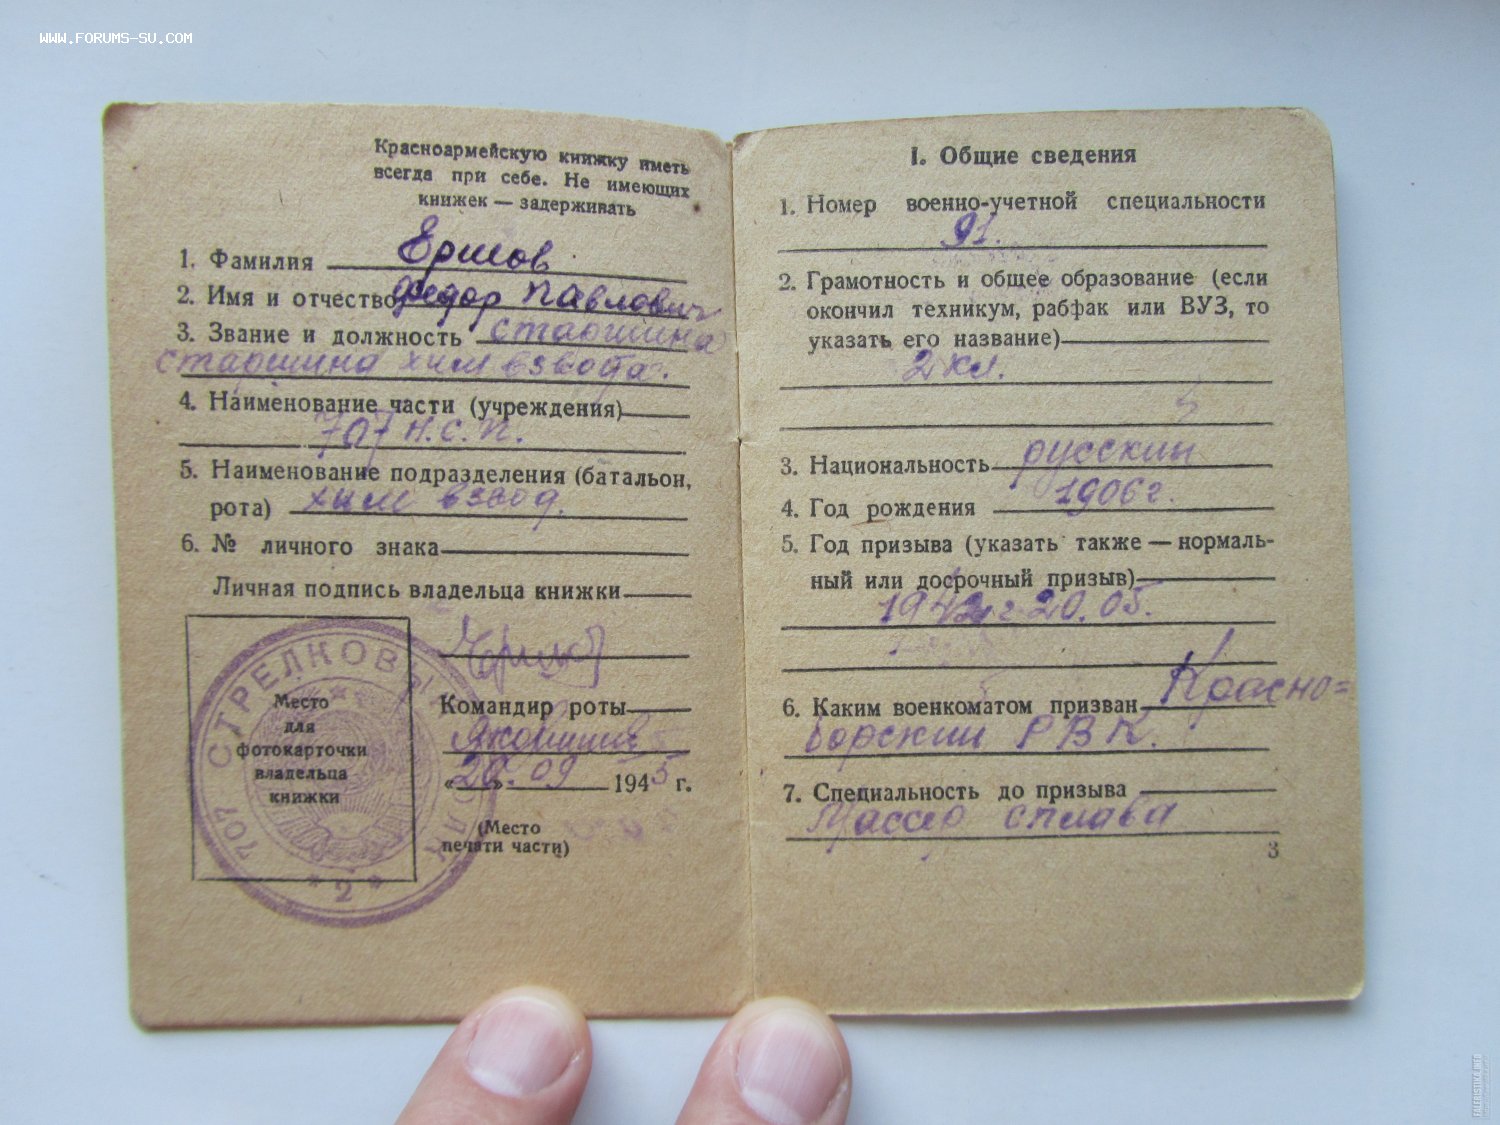 WWW.FORUMS-SU.COM
Красноармейскую книжку иметь
всегда при себе. Не имеющих
книжек — задерживать
1. Фамилия Ершов
2. Имя и отчество Федор Павлович
3. Звание и должность старшина
старшина хим взвода.
4. Наименование части (учреждения)
707 н.с.п.
5. Наименование подразделения (батальон,
рота) хим взвод.
6. № личного знака
Личная подпись владельца книжки
Место
для
фотокарточки
владельца
книжки
707 СТРЕЛКОВЫЙ
* 2 *
Командир роты
«20».09 1945 г.
(Место
печати части)
I. Общие сведения
1. Номер военно-учетной специальности
91.
2. Грамотность и общее образование (если
окончил техникум, рабфак или ВУЗ, то
указать его название)
2 кл.
3. Национальность русский
4. Год рождения 1906 г.
5. Год призыва (указать также — нормаль-
ный или досрочный призыв)
1942 г 20.05.
6. Каким военкоматом призван Красно=
борским РВК.
7. Специальность до призыва
сплава
3
FALERISTIKA.INFO